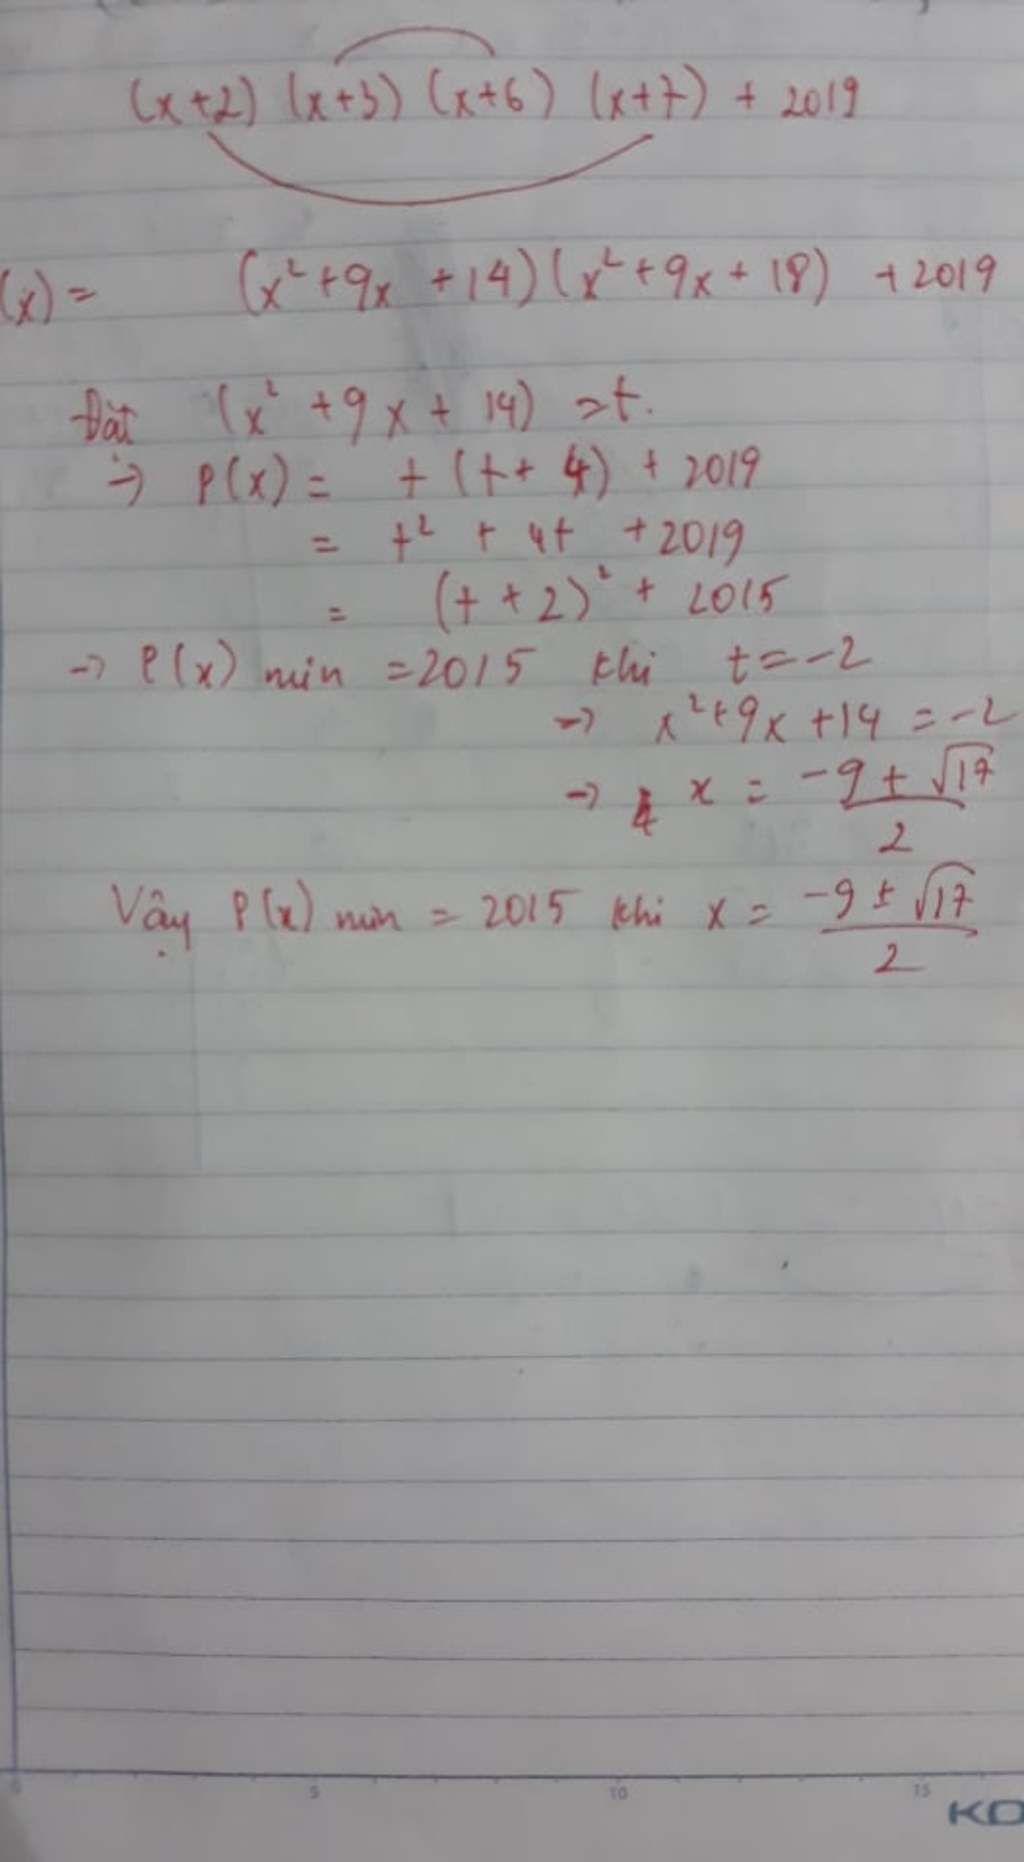 (x+2) (x+3) (x+6) (x+7) + 2019
(x) = (x²+9x +14)(x²+9x+18) +2019
Đặt (x² +9x+14) =t.
→ P(x) = t(t+4) + 2019
= t² + 4t +2019
= (t+2)² + 2015
→ P(x) min =2015 khi t=-2
→ x²+9x+14 =-2
→ x = (-9 ± √17)/2
Vậy P(x) min = 2015 khi x = (-9 ± √17)/2
5 10 15